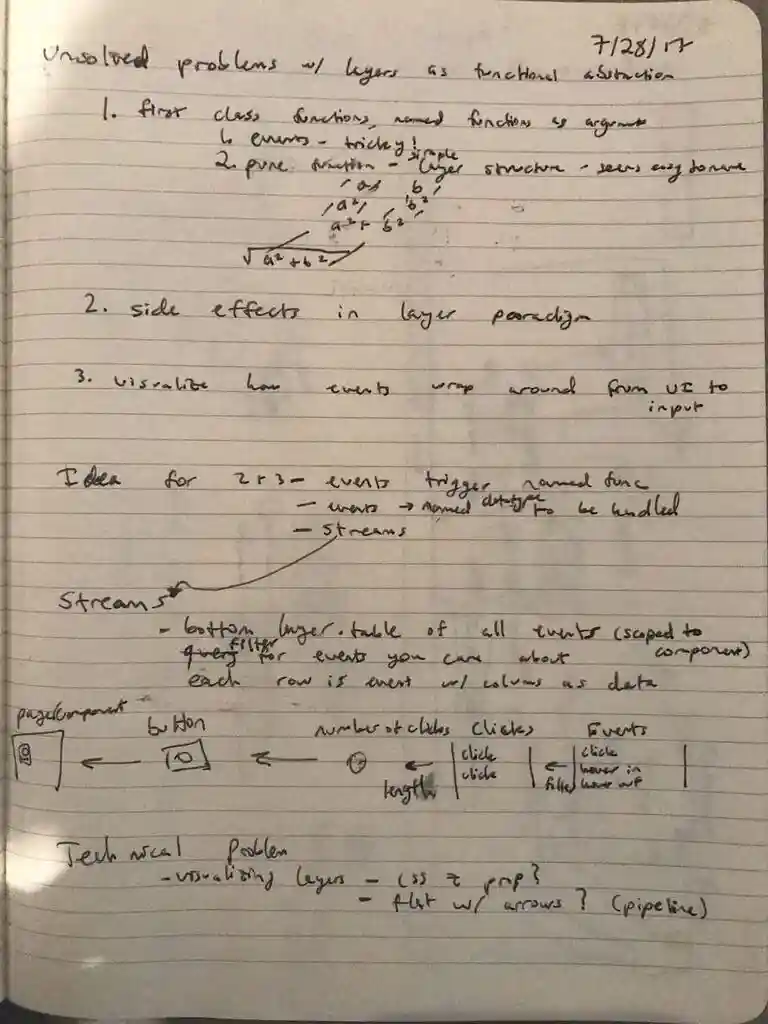 7/28/17
Unsolved problems w/ layers as functional abstraction
1. first class functions, named functions as arguments
↳ events - tricky!
2. pure function - simple layer structure - seems easy to name
a b
a² b²
a² + b²
√a² + b²
2. side effects in layer paradigm
3. visualize how events wrap around from UI to
input
Idea for 2 + 3 - events trigger named func
- events → named datatype to be handled
- Streams
Streams
- bottom layer. table of all events (scoped to
component)
query filter for events you care about
each row is event w/ colums as data
page/component button number of clicks Clicks Events
click click
click hover in
length filter hover out
0
Technical Problem
- visualizing layers - CSS z prop?
- flat w/ arrows? (pipeline)